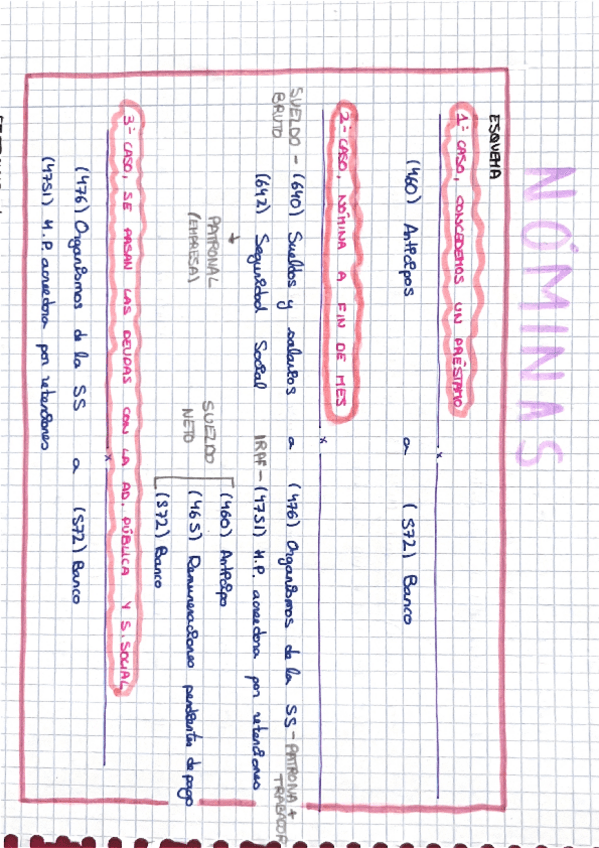 NÓMINAS
ESQUEMA
1º CASO, CONCEDEMOS UN PRÉSTAMO
(460) Anticipos a (572) Banco
x
2º CASO, NÓMINA A FIN DE MES
SUELDO BRUTO - (640) Sueldos y salarios a (476) Organismos de la SS - PATRONA + TRABADOR
(642) Seguridad Social IRPF - (4751) H.P. acreedora por retenciones
PATRONAL (EMPRESA)
(460) Anticipo
SUELDO NETO (465) Remuneraciones pendientes de pago
(572) Banco
x
3º CASO, SE PAGAN LAS DEUDAS CON LA AD. PÚBLICA Y S. SOCIAL
x
(476) Organismos de la SS a (572) Banco
(4751) H.P. acreedora por retenciones